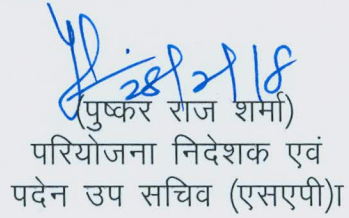 28/2/18
(पुष्कर राज शर्मा)
परियोजना निदेशक एवं
पदेन उप सचिव (एसएपी)ा